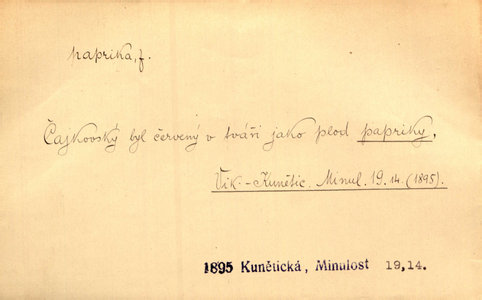 paprika, f.
Čajkovský byl červený v tváři jako plod papriky,
Vik.-Kunětic. Minul. 19.14. (1895).
1895 Kunětická, Minulost 19,14.